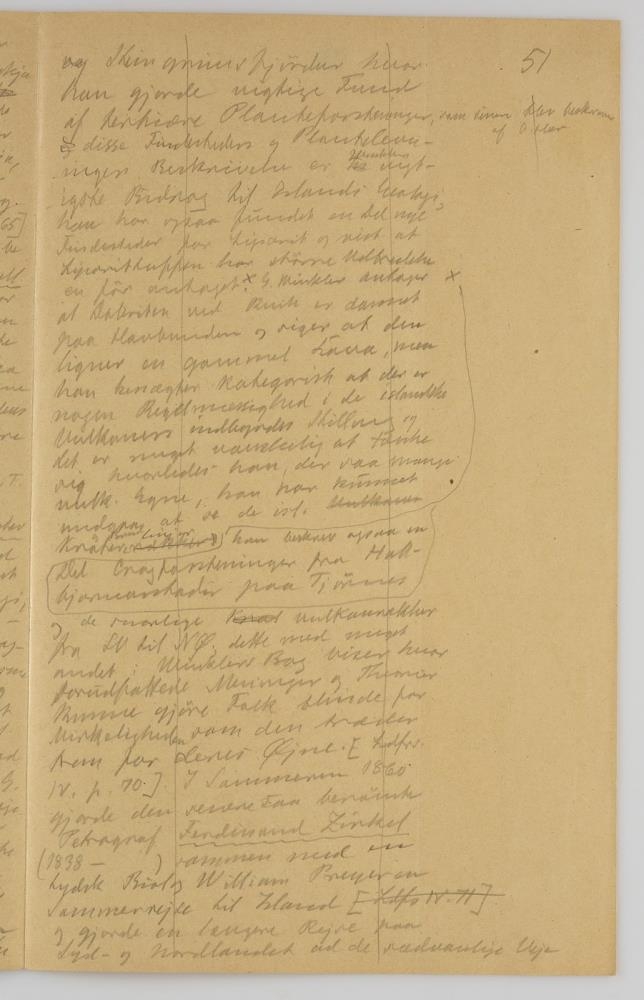 51
og Steingrimsfjördur hvor
han gjorde vigtige Fund
af tertiære Planteforsteninger, som senere blev beskrevne af O. Heer
disse Findesteders og Plantelev-
ningers Beskrivelse er Winklers vigt-
igste Bidrag til Islands Geologi,
han har ogsaa fundet en Del nye
Findesteder for Liparit og vist at
Liparittuffen har större Udbredelse
en för antaget. x G. Winkler antager x
at Doleriten ved Reik. er dannet
paa Havbunden og siger at den
ligner en gammel Lava, men
han benægter kategorisk at der er
nogen Regelmæssighed i de islandske
Vulkaners indbyrdes Stilling og
det er meget vanskelig at tænke
sig hvorledes han, der saa mange
vulk. Egne, han har kunnet
undgaa at se de isl. Vulkaners
Kraterrækker han beskrev ogsaa en
Del Cragforsteninger fra Hall-
bjarnarstadir paa Tjörnes
og de snorlige vulkanrækker
fra SV til NØ. dette med meget
andet i Winklers Bog viser hvor
forudfattede Meninger og Theorier
kunne gjöre Folk blinde for
Virkeligheden som den træder
frem for deres Øjne. [Ldfrs.
IV. p. 70.] I Sommeren 1860
gjorde den senere saa berömte
Petrograf Ferdinand Zirkel
(1838 - ) sammen med en
tydsk Biolog William Preyer en
Sommerrejse til Island [Ldfs IV. 71]
og gjorde en længere Rejse paa
Syd- og Nordlandet ad de sædvanlige Veje